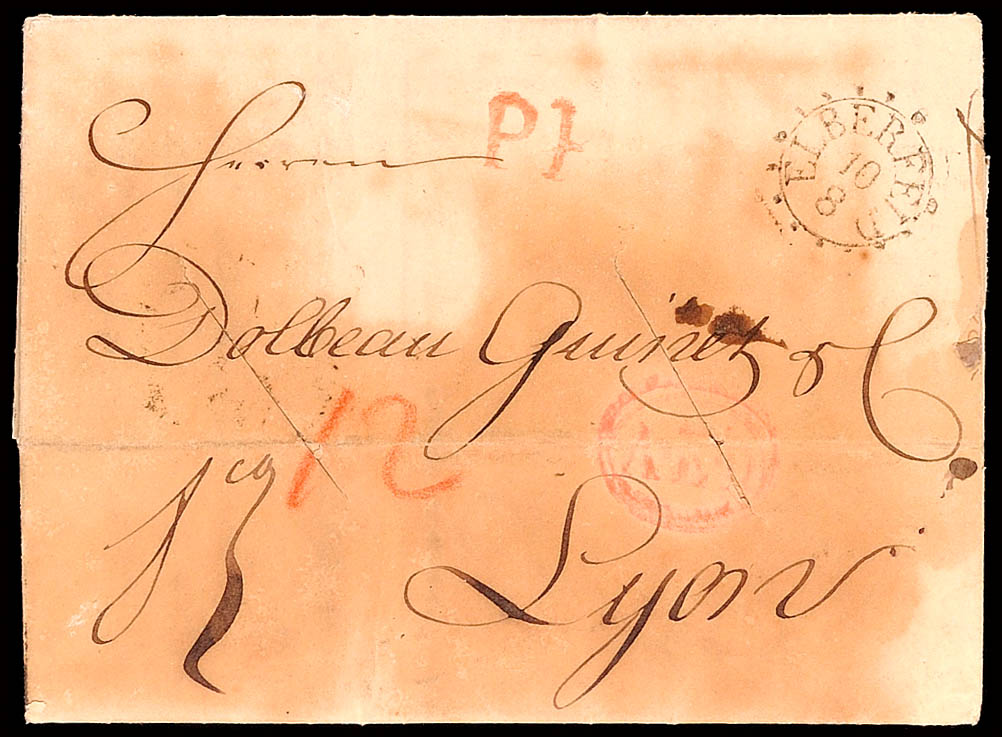 P.
ELBERFELD
10
8
Herren
Dolbeau Guinet & C
12
Lyon